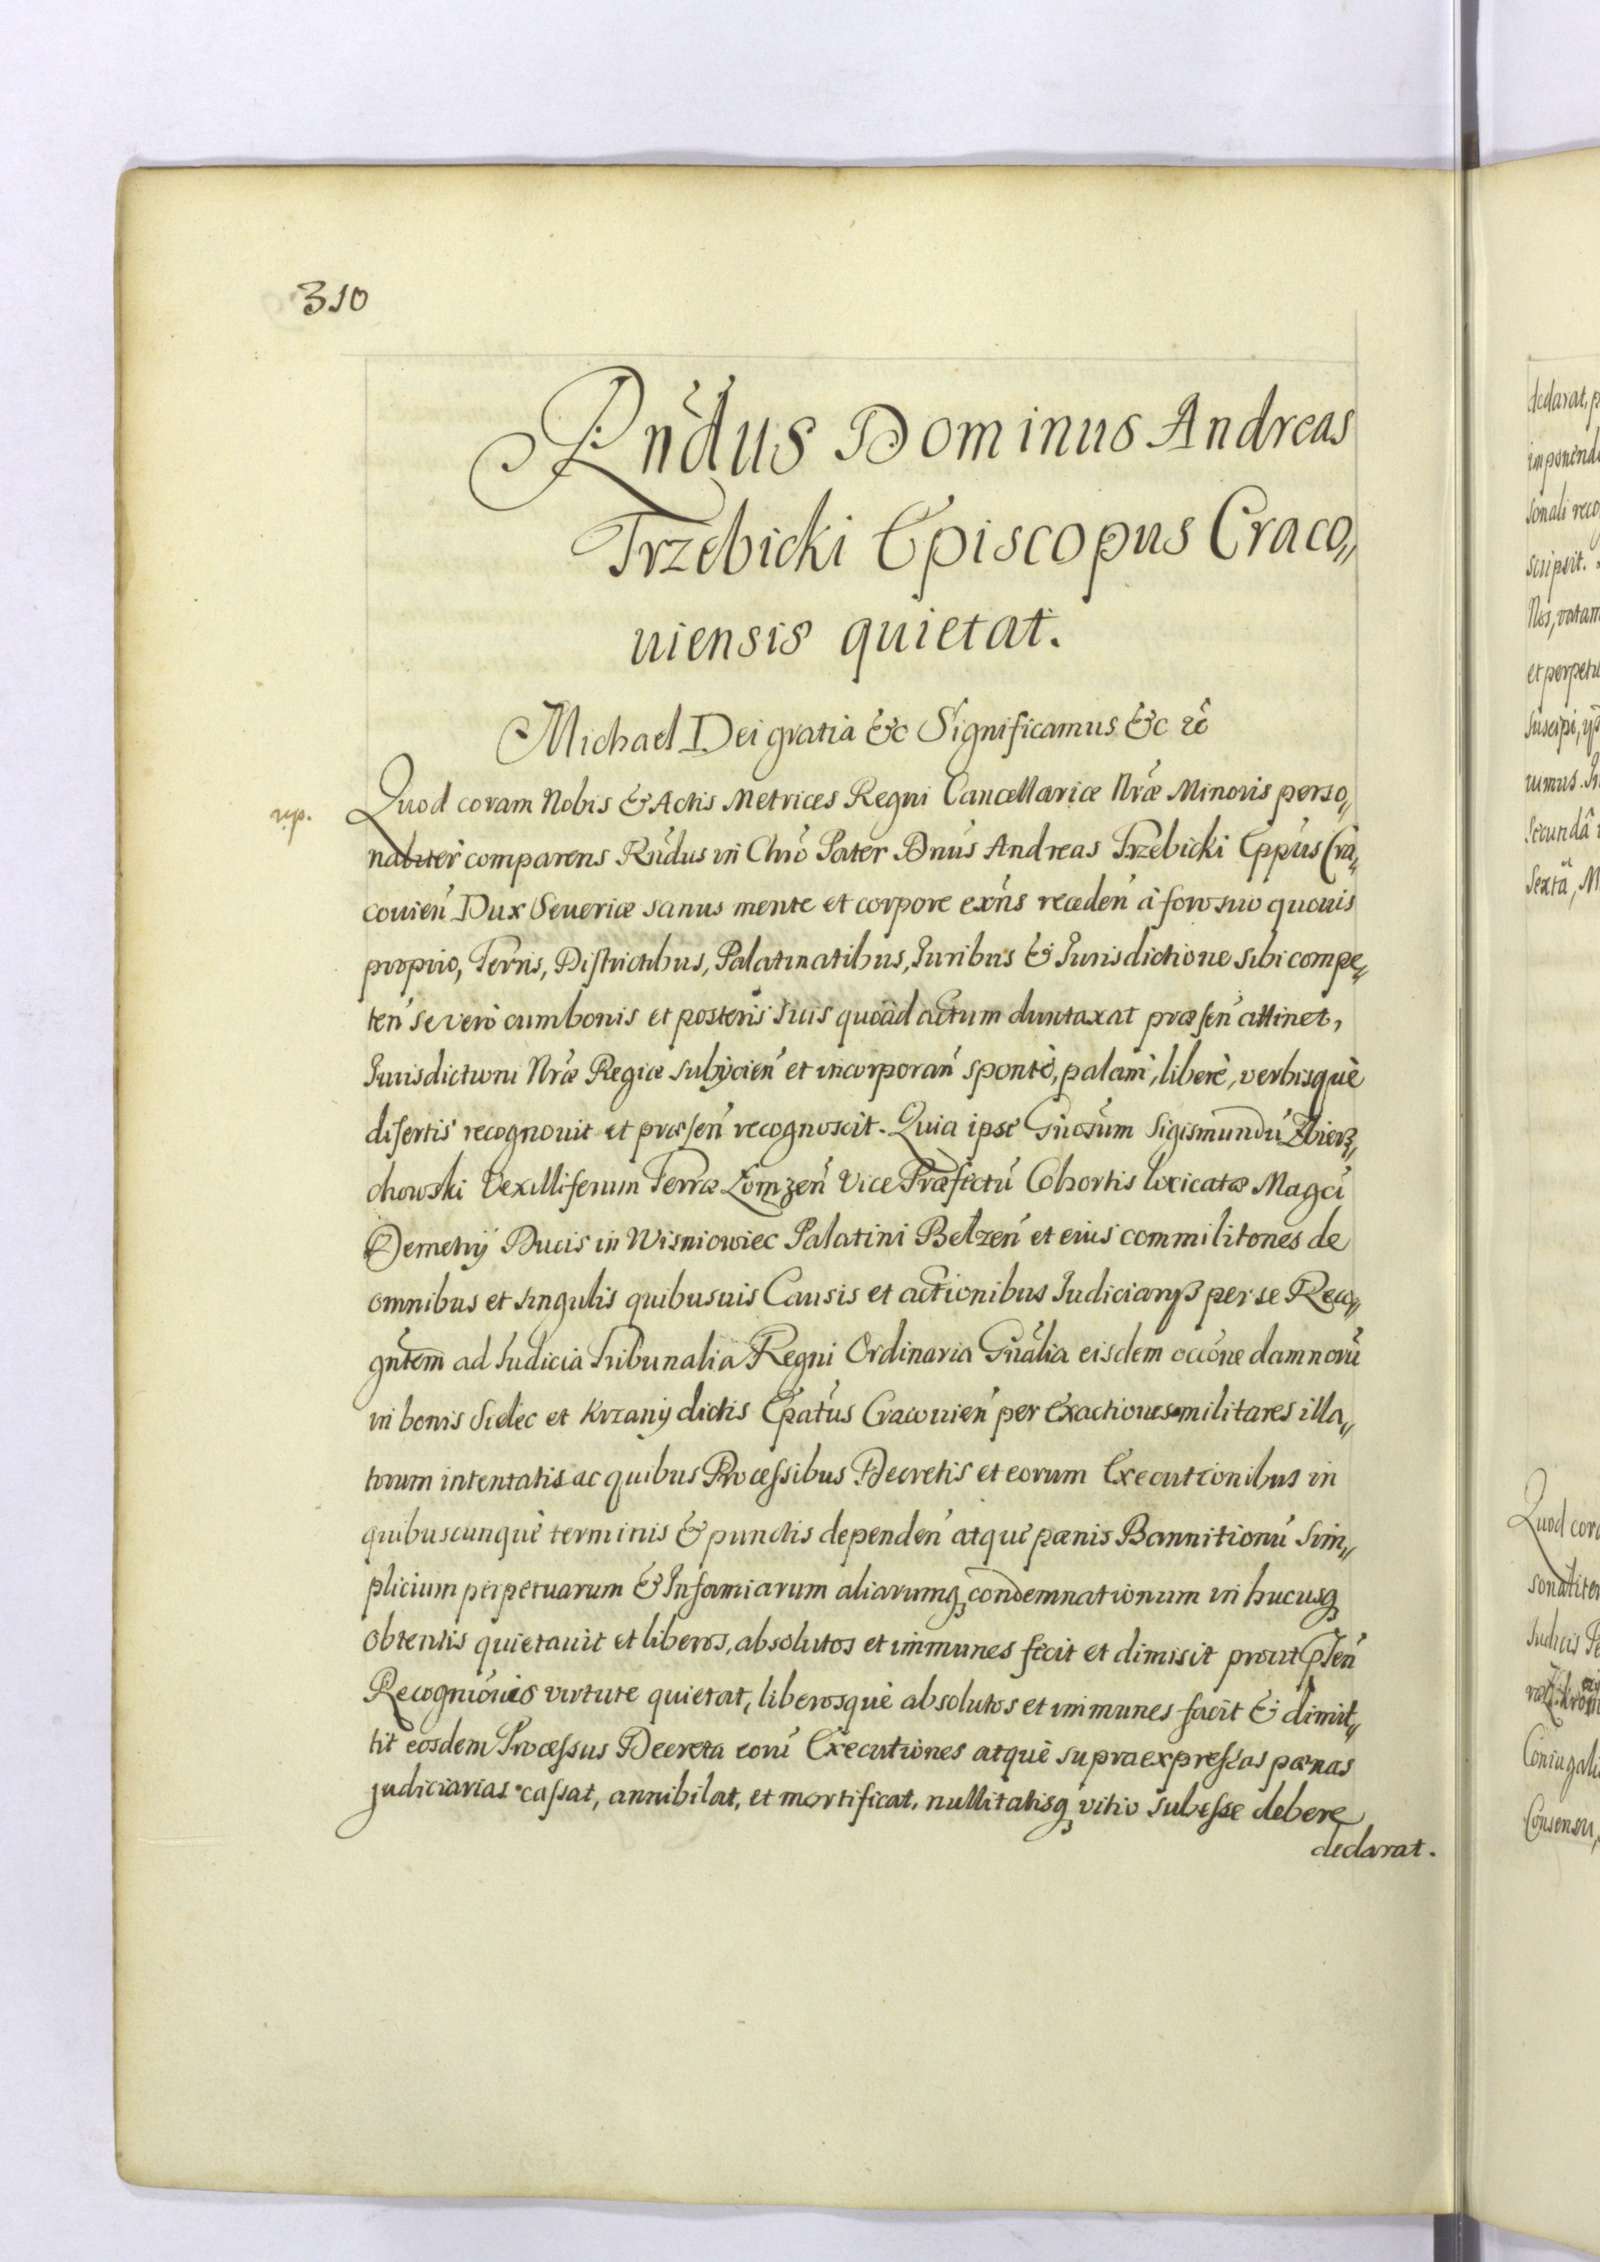 310
Rńdus Dominus Andreas
Trzebicki Episcopus Craco„
uiensis quietat.
Michael Dei gratia &c Significamus &c
rp. Quod coram Nobis & Actis Metrices Regni Cancellariæ Nræ Minoris perso„
naliter comparens Rńdus in Chrõ Pater Dnus Andreas Trzebicki Eppus Cra„
couień Dux Seueriæ sanus mente et corpore exńs receden à foro suo quouis
proprio, Terris, Districtibus, Palatinatibus, Juribus & Jurisdictione sibi compe„
teń se verò cum bonis et posteris suis quoàd actum duntaxat præseń attinet,
Jurisdictioni Nræ Regiæ subijcień et incorporań spontè, palam, liberè, verbisquè
disertis recognouit et præseń recognoscit. Quia ipse Gńosum Sigismundū Zbierz„
chowski Vexilliferum Terræ Łomzeń Vice Præfectū Cohortis loricatæ Magcí
Demetrij Ducis in Wisniowiec Palatini Bełzeń et eius commilitones de
omnibus et singulis quibusuis Causis et actionibus Judiciarijs per se Reco„
gńtem ad Judicia Tribunalia Regni Ordinaria Gńalia eisdem occõne damnorū
in bonis Sielec et Krzanij dictis Epatus Cracouień per exactiones militares illa„
torum intentatis ac quibus Processibus Decretis et eorum Executionibus in
quibuscunquè terminis & punctis dependeń atquè pœnis Bannitionū Sim„
plicium perpetuarum & Infamiarum aliarumq condemnationum in hucusq
obtentis quietauit et liberos, absolutos et immunes fecit et dimisit prout pñseń
Recogniõnis virtute quietat, liberosquè absolutos et immunes facit & dimit„
tit eosdem Processus Decreta eorū Executiones atquè supraexpressas pœnas
judiciarias cassat, annihilat, et mortificat, nullitatisq vitio subesse debere
declarat.